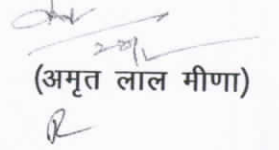 (अमृत लाल मीणा)